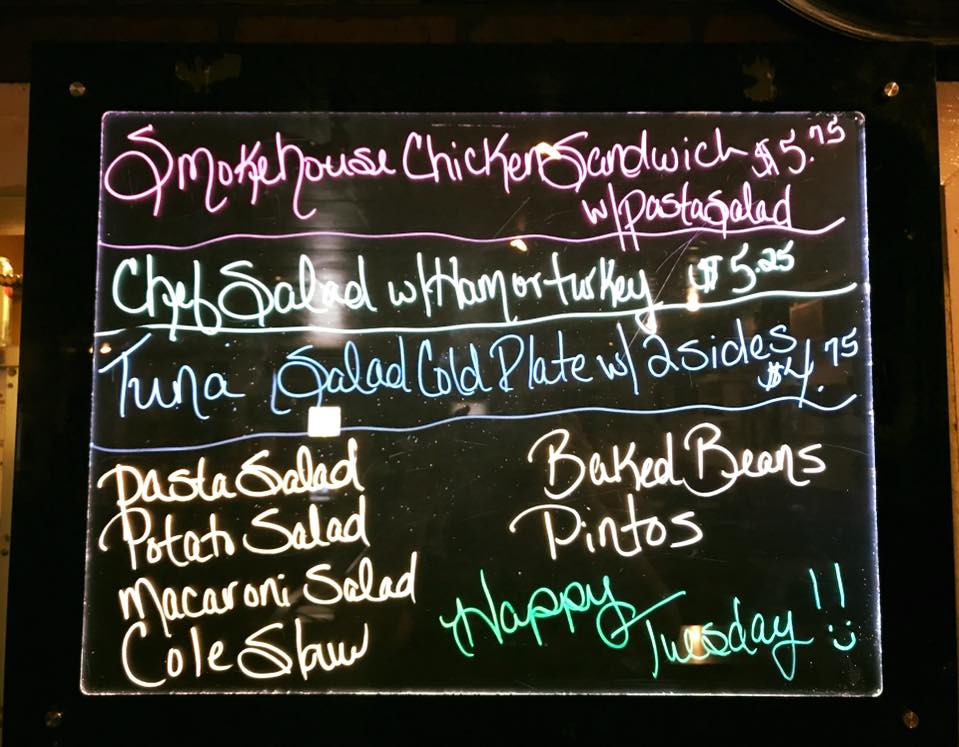 Smokehouse Chicken Sandwich $5.75
w/ Pasta Salad
Chef Salad w/ Ham or turkey $5.25
Tuna Salad Cold Plate w/ 2 sides
$4.75
Pasta Salad
Potato Salad
Macaroni Salad
Cole Slaw
Baked Beans
Pintos
Happy Tuesday!!